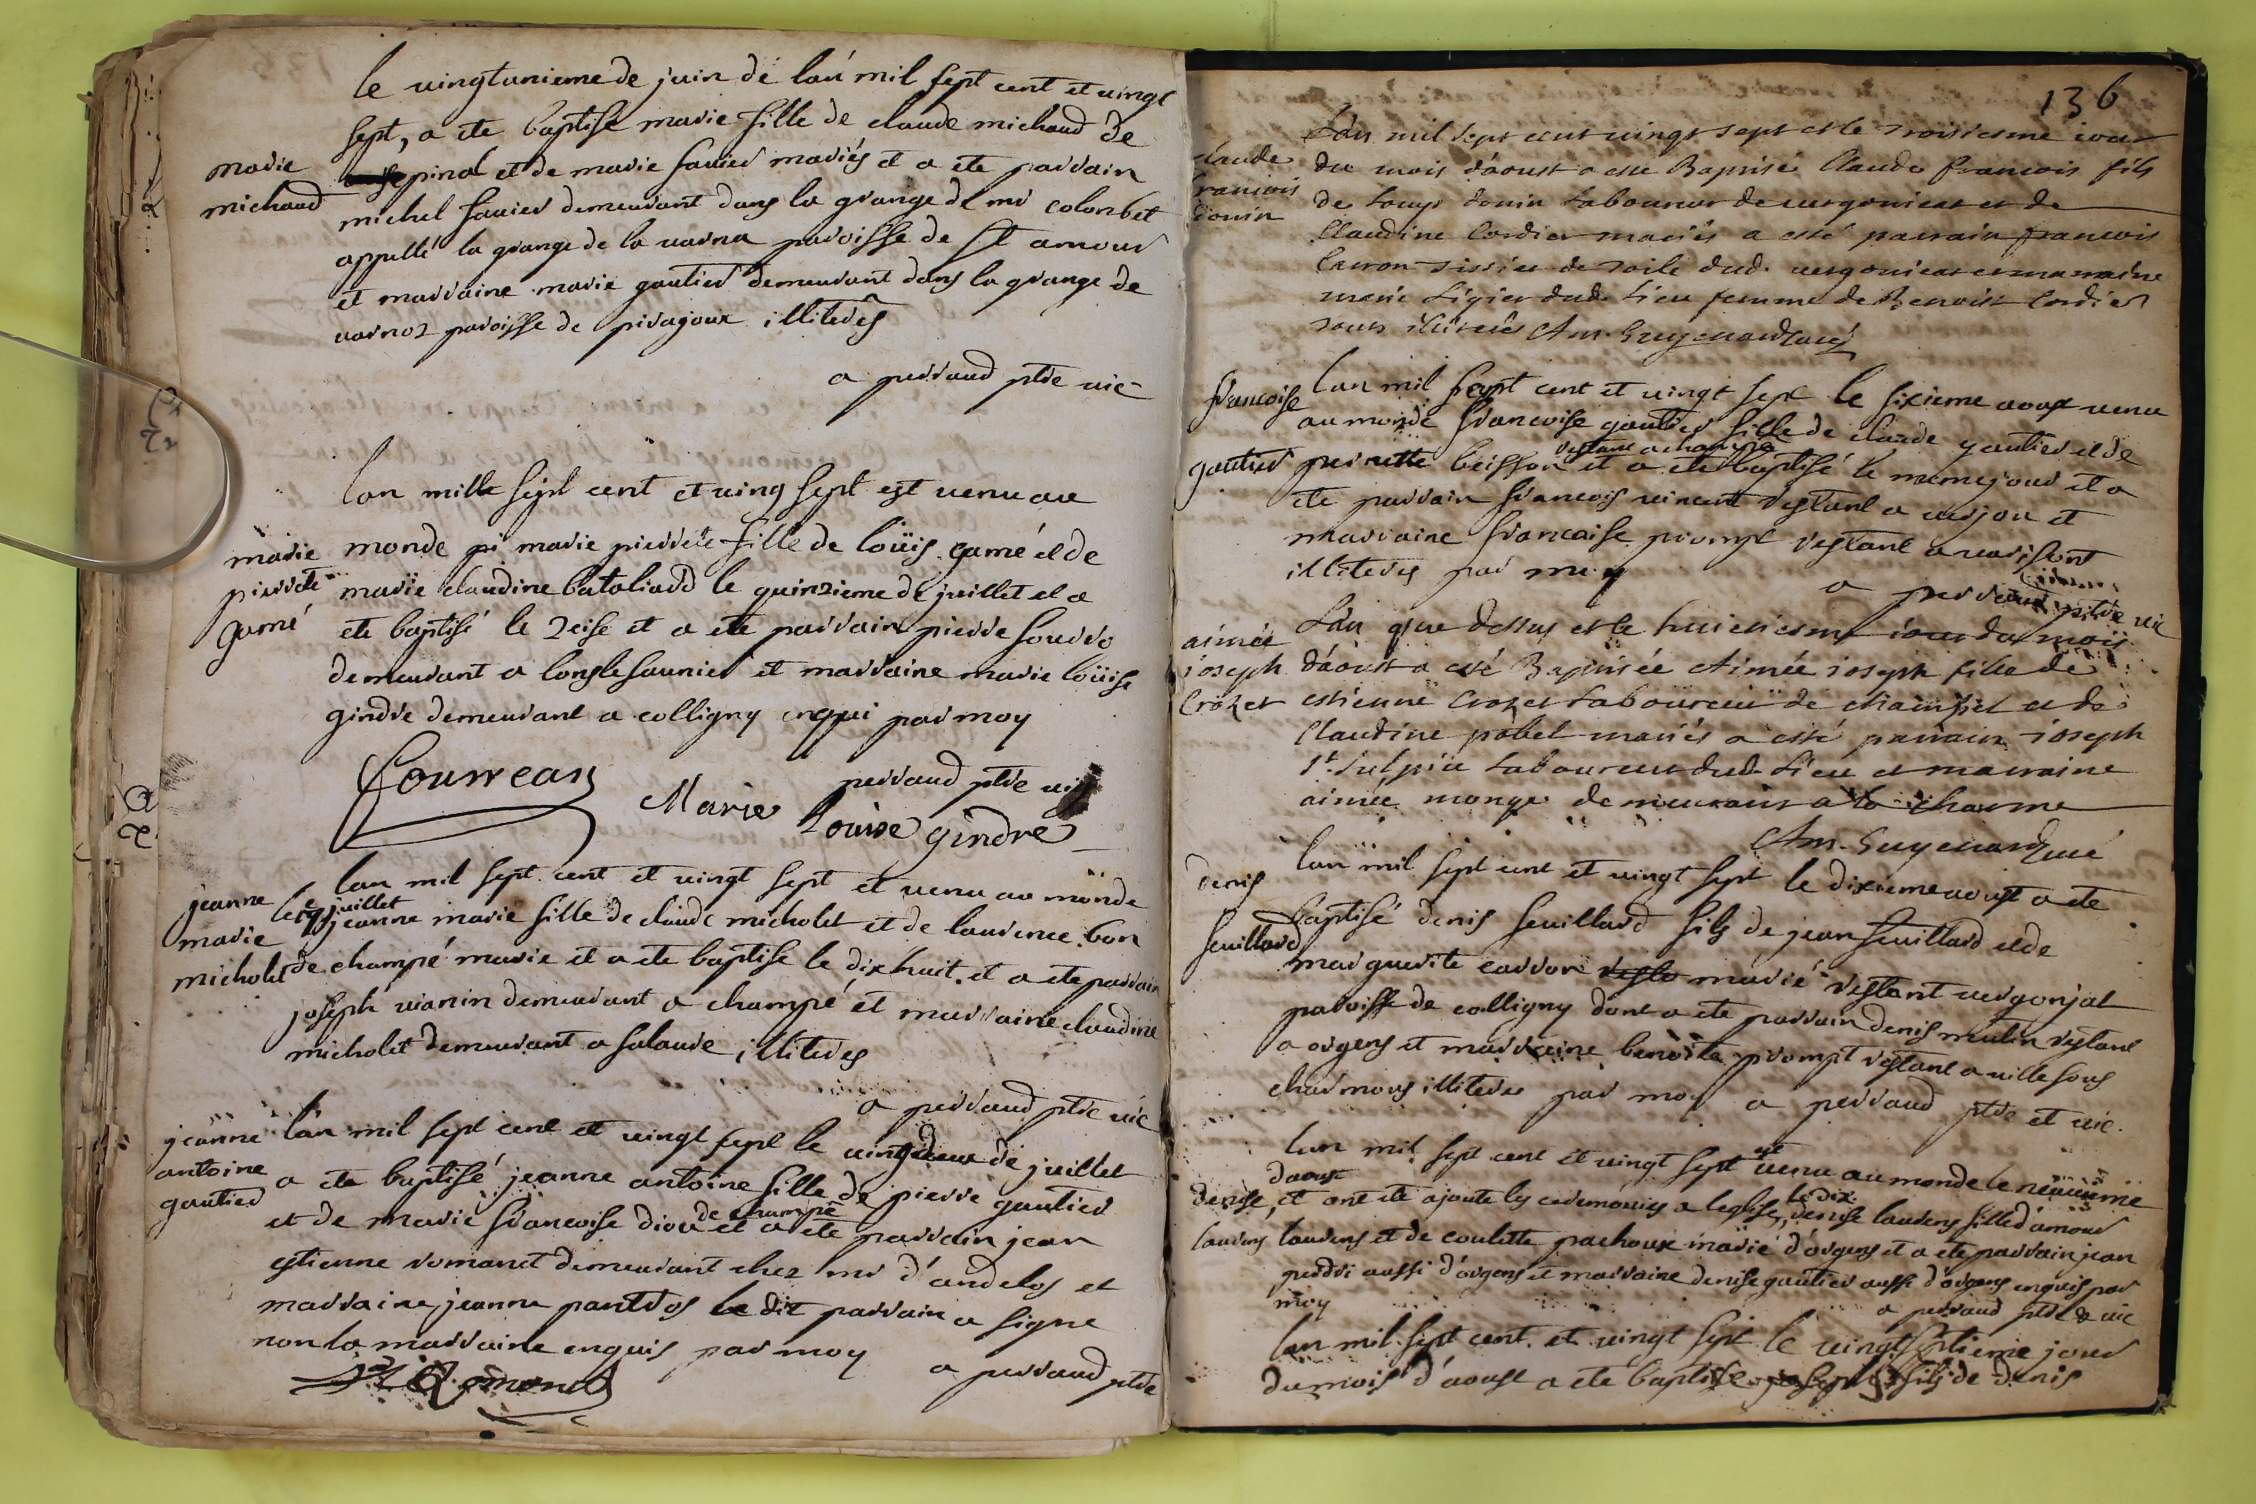 le vingtunieme de juin de lan mil sept cent et vingt
sept, a ete baptise marie fille de claude michaud de
marie
michaud
epinal et de marie favier mariés et a ete parrain
michel favier demeurant dans la grange de mr colombet
appellé la grange de la varna paroisse de st amour
et marraine marie gautier demeurant dans la grange de
varnoz paroisse de pirajoux illiterés
a perraud ptre vic
lan mille sept cent et ving sept est venu au
marie
pierrete
gamé
monde pi marie pierrete fille de loüis gamé et de
marie claudine bataliard le quinzieme de juillet et a
ete baptisé le zeise et a ete parrain pierre
demeurant a lonslesaunier et marraine marie loüise
gindre demeurant a colligny enquis par moy
perraud ptre vic
Marie Louise gindre
lan mil sept cent et vingt sept et venu au monde
jeanne
marie
micholet
le juillet
jeanne marie fille de claude micholet et de laurence bon
de champé marie et a ete baptise le dix huit et a ete parrain
joseph vianin demeurant a champé et marraine claudine
micholet demeurant a salavre illiterés
a perraud ptre vic
jeanne
antoine
gautier
lan mil sept cent et vingt sept le vingtdeux de juillet
a ete baptisé jeanne antoine fille de pierre gautier
de champé
et de marie francoise et a ete parrain jean
estienne romanet demeurant chez mr d'andelos et
marraine jeanne le dit parrain a signe
non la marraine enquis par moy
a perraud ptre
136
Lan mil sept cent vingt sept et le troisiesme iour
claude
francois
donin
du mois d'aoust a esté Baptisé Claude francois fils
de Louys donin Laboureur de vergonieat et de
Claudine Cordier mariés a esté parrain francois
tissier de toile dud. vergonieat et marraine
marie Ligier dud. Lieu femme de Benoist Cordier
tous illiterés Am. Guyenard curé
francoise
gautier
lan mil sept cent et vingt sept le sixieme aoust venu
au monde francoise gautier fille de claude gautier et de
restant a champé
perrette beisson et a ete baptisé le meme jour et a
ete parrain francois vincent restant a verjon et
marraine francoise prompt restant a
illiterés par moy
a perraud ptre vic
Lan que dessus et le huictiesme iour du mois
aimée
ioseph
Crozet
d'aoust a esté Baptisée Aimée ioseph fille de
estienne Crozet Laboureur de champel et de
Claudine pobel mariés a esté parrain ioseph
St. Sulpice Laboureur dud. Lieu et marraine
aimée monge demeurant a la charme
Am. Guyenard curé
denis
feuillard
lan mil sept cent et vingt sept le dixieme aoust a ete
baptisé denis feuillard fils de jean feuillard et de
marguerite carron marié restant vergonjat
paroisse de colligny dont a ete parrain denis mutin restant
a orgens et marraine benoite prompt restant a ville sous
charmoux illiterés par moy a perraud ptre et vic.
lan mil sept cent et vingt sept est venu au monde le neuvieme
daoust
denise
laurens
et ont ete ajoute les ceremonies a leglise, le dix denise laurens fille d'amour
laurens et de coulette pachoux marié d'orgens et a ete parrain jean
aussi d'orgens et marraine denise gautier aussi d'orgens enquis par
moy
a perraud ptre & vic
lan mil sept cent et vingt sept le vingtseptieme jour
du mois d'aoust a ete baptise joseph fils de denis